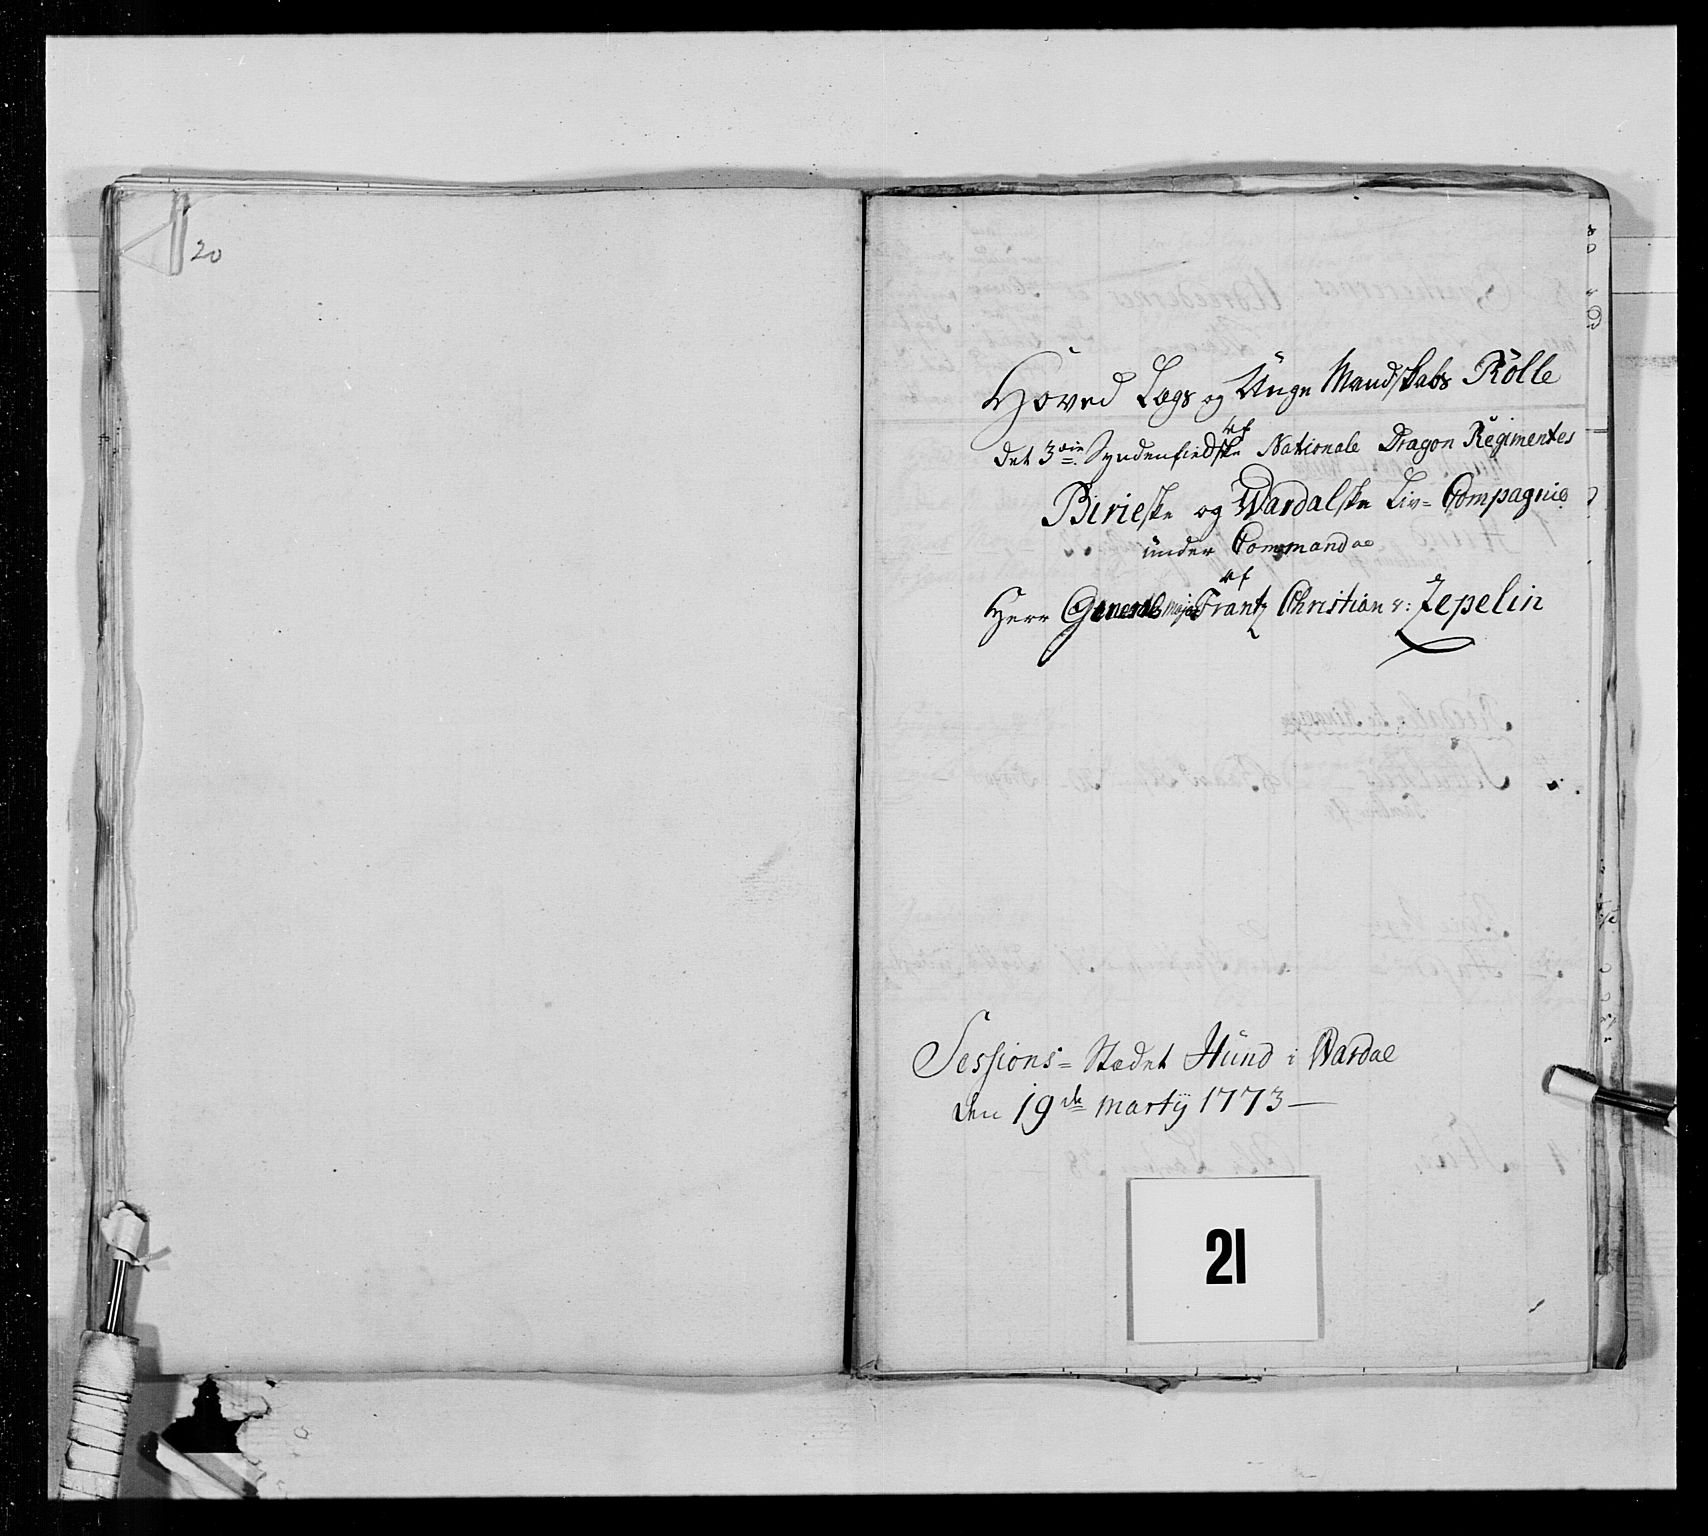 20
Hoved Lægs og Unge Mandskabs Rolle
af
det 3die Syndenfieldske Nationale Dragon Regimentes
Birieske og Wardalske Liv= Compagnie
under Commandoe
af
Herr General Major Frantz Christian v: Zepelin
Sessions= Stædet Hund i Wardal
den 19de Martij 1773
21